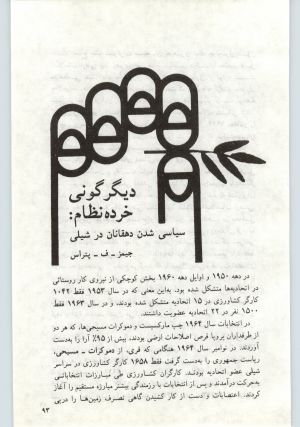 دیگرگونی
خرده‌نظام:
سیاسی شدن دهقانان در شیلی
جیمز ـ ف ـ پتراس
در دهه ۱۹۵۰ و اوایل دهه ۱۹۶۰ بخش کوچکی از نیروی کار روستائی
در اتحادیه‌ها متشکل شده بود. به‌این معنی که در سال ۱۹۵۳ فقط ۱۰۴۲
کارگر کشاورزی در ۱۵ اتحادیه متشکل شده بودند، و در سال ۱۹۶۳ فقط
۱۵۰۰ نفر در ۲۲ اتحادیه عضویت داشتند.
در انتخابات سال ۱۹۶۴ چپ مارکسیست و دموکرات مسیحی‌ها، که هر دو
از طرفداران پروپا قرص اصلاحات ارضی بودند، بیش از ۹۵٪ آرا را به‌دست
آوردند. در نوامبر سال ۱۹۶۴ هنگامی که فری، از دموکرات ـ مسیحی،
ریاست جمهوری را به‌دست گرفت فقط ۱۶۵۸ کارگر کشاورزی در سراسر
شیلی عضو اتحادیه بودند. کارگران کشاورزی طی مبارزات انتخاباتی
به‌حرکت درآمدند و پس از انتخابات با رزمندگی بیشتر مبارزه مستقیم را آغاز
کردند. اعتصابات و دست از کار کشیدن گاهی تصرف زمین‌ها را درپی
۹۳